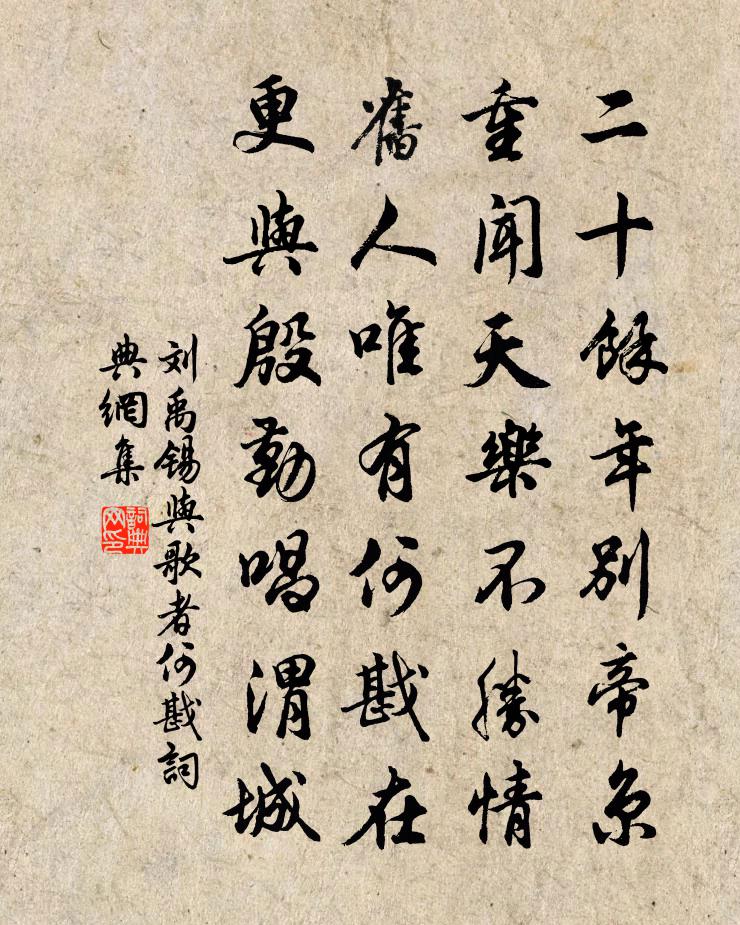 二十餘年別帝京
重聞天樂不勝情
舊人唯有何戡在
更與殷勤唱渭城
刘禹锡與歌者何戡詞
典網集
詞典網印